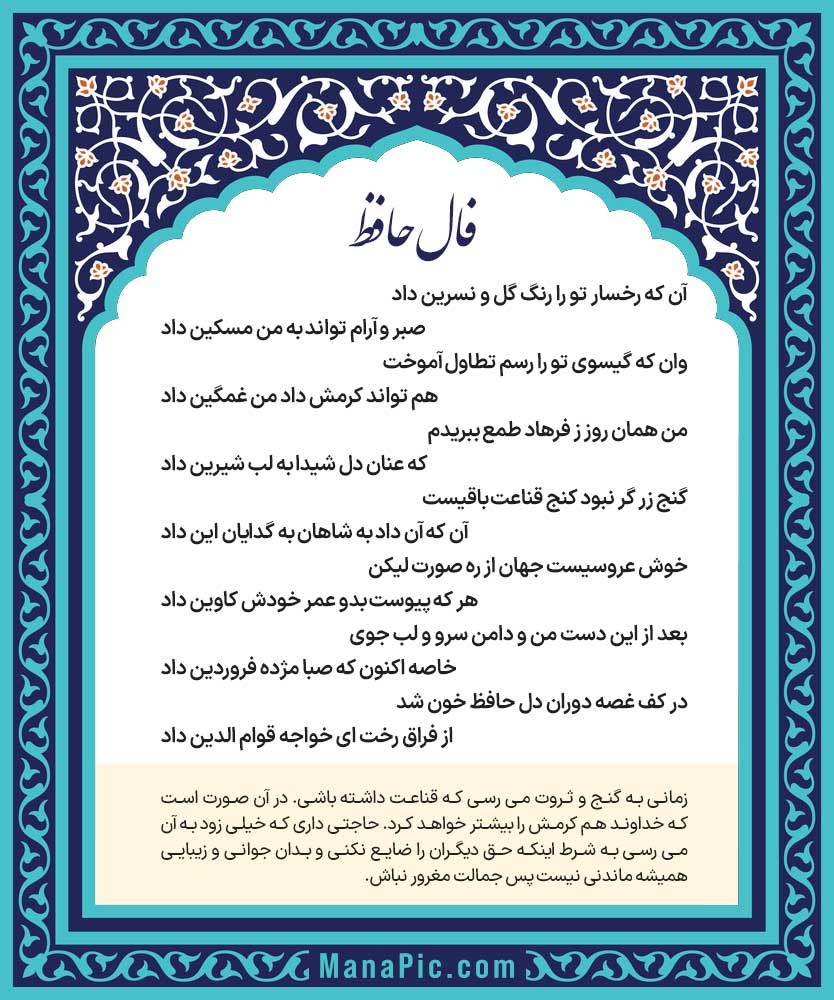 فال حافظ
آن که رخسار تو را رنگ گل و نسرین داد
صبر و آرام تواند به من مسکین داد
وان که گیسوی تو را رسم تطاول آموخت
هم تواند کرمش داد من غمگین داد
من همان روز ز فرهاد طمع ببریدم
که عنان دل شیدا به لب شیرین داد
گنج زر گر نبود کنج قناعت باقیست
آن که آن داد به شاهان به گدایان این داد
خوش عروسیست جهان از ره صورت لیکن
هر که پیوست بدو عمر خودش کاوین داد
بعد از این دست من و دامن سرو و لب جوی
خاصه اکنون که صبا مژده فروردین داد
در کف غصه دوران دل حافظ خون شد
از فراق رخت ای خواجه قوام الدین داد
زمانی به گنج و ثروت می رسی که قناعت داشته باشی. در آن صورت است
که خداوند هم کرمش را بیشتر خواهد کرد. حاجتی داری که خیلی زود به آن
می رسی به شرط اینکه حق دیگران را ضایع نکنی و بدان جوانی و زیبایی
همیشه ماندنی نیست پس جمالت مغرور نباش.
ManaPic.com